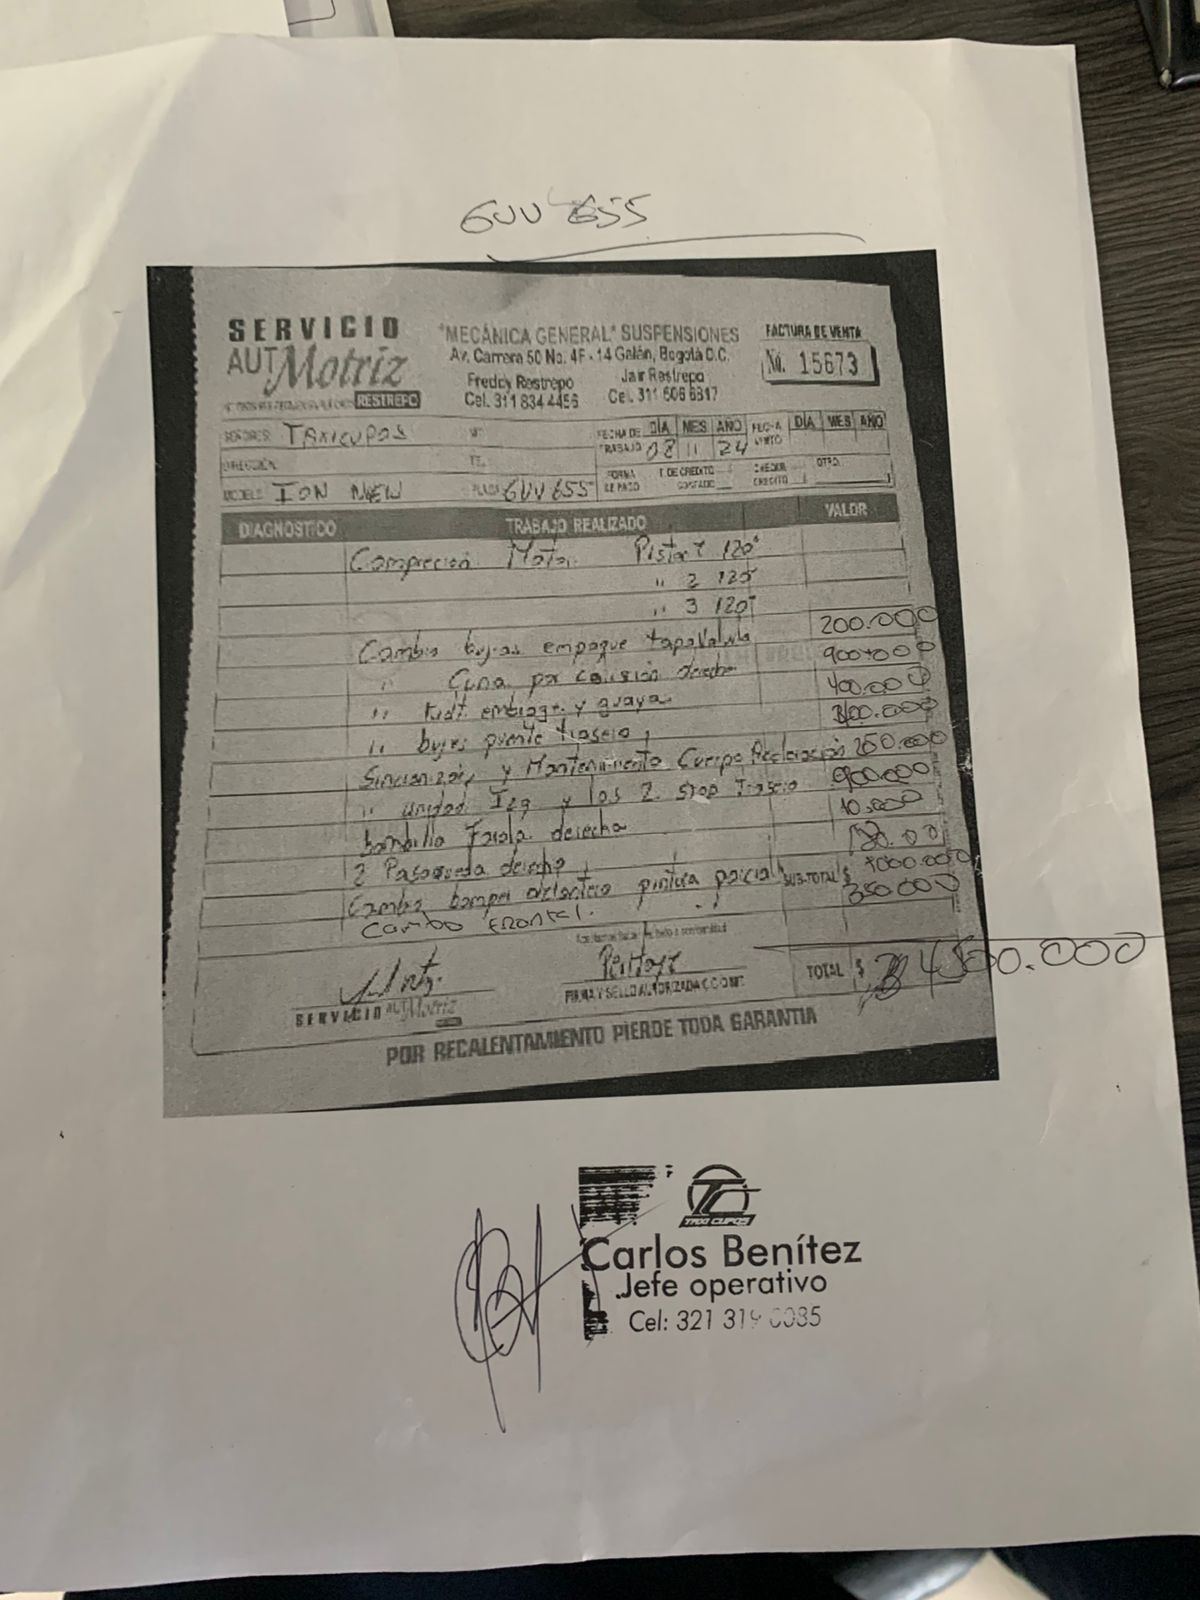 GUV 655
SERVICIO
AUTMotriz
RESTREPO
"MECÁNICA GENERAL" SUSPENSIONES
Av. Carrera 50 No. 4F - 14 Galán, Bogotá D.C.
Freddy Restrepo Jair Restrepo
Cel. 311 834 4456 Cel. 311 606 6317
FACTURA DE VENTA
No. 15673
SEÑORES: TAXICUPOS
FECHA DE TRABAJO DÍA MES AÑO 08 11 24
FECHA VINTO DÍA MES AÑO
DIRECCIÓN: TEL.
FORMA DE PAGO T DE CREDITO CONTADO CHEQUE CREDITO OTRO
MODELO: ION NEW PLACA: GUV 655
DIAGNOSTICO TRABAJO REALIZADO VALOR
Compreción Motor Pistón 1 120
" 2 125
" 3 120
Cambio bujias empaque tapaValvula 200.000
" Cuna por colisión derecha 900.000
" Kidt embrage y guaya 400.000
" bujes puente trasero
Sincronizar y Mantenimiento Cuerpo Aceleración 250.000
" unidad Izq y los 2 stop Trasero 900.000
bombillo Farola derecha 10.000
2 Pasarueda derecho
Cambio bomper delantero pintura parcial SUB-TOTAL $ 1000.000
Cambio Frontal. 350.000
SERVICIO AUTMotriz
FIRMA Y SELLO AUTORIZADA C.C O NIT.
TOTAL $ 4500.000
POR RECALENTAMIENTO PIERDE TODA GARANTIA
TC
TAXI CUPOS
Carlos Benítez
Jefe operativo
Cel: 321 319 0085